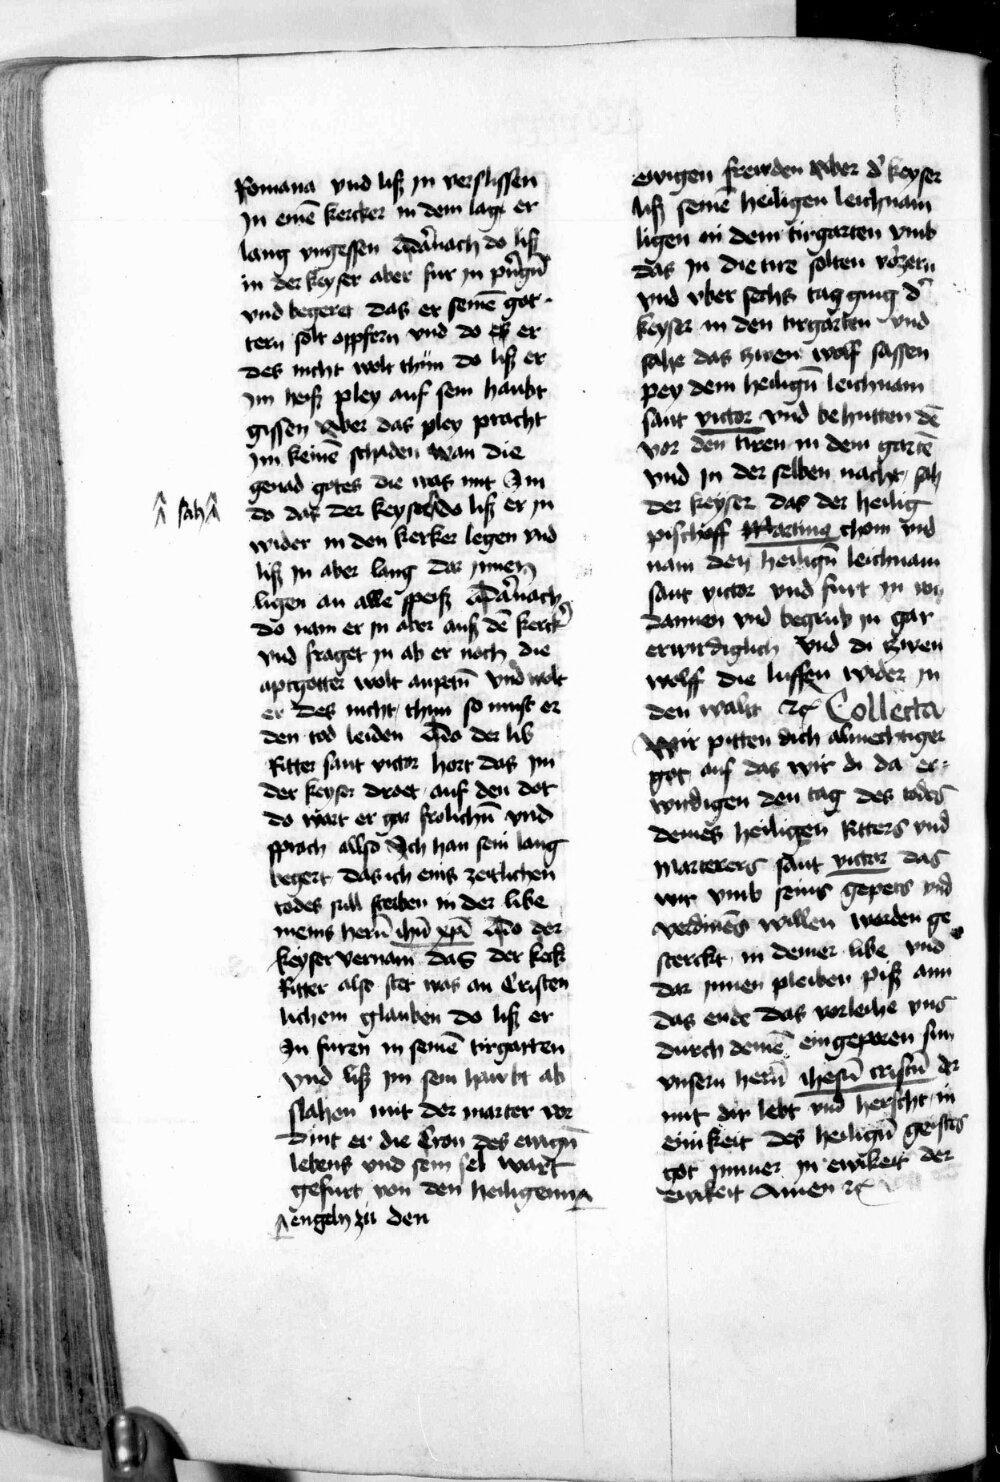 Romana vnd liß in verslissen
In einē kercker in dem lage er
lang vngessen Dārnach do liß
in der keyser aber fur in
vnd begeret das er seinē got-
tern solt oppfern vnd do er
des nicht wolt thün do liß er
Im heiß pley auf sein haubt
gyssen Aber das pley pracht
Im keinē schaden wan die
genad gotes die was mit Im
do das der keyser do liß er in
^ sah ^
wider in den kerker legen vnd
liß in aber lang dar Innen
ligen an alle speiß Dārnach
do nam er in aber auß dē kerckʾ
vnd fraget in ab er noch die
aptgotter wolt anpetn̄ vnd wolt
er des nicht thun so must er
den tod leiden Do der lib
Ritter sant victor hort das Im
der keyser droet auf den dot
do wart er gar frolichn̄ vnd
sprach also Ich han sein lang
begert das ich eins zeitlichen
todes sull sterben in der libe
meins hern̄ ihū xp̄i Do der
keyser vernam das der keck
Ritter also stet was an Cristen
lichem glauben do liß er
In furen in seinē tirgarten
vnd liß im sein hawbt ab
slahen mit der marter vor
dint er die Cron des ewign̄
lebens vnd sein sel wart
gefurt von den heiligenn
engeln zu den
ewigen frewden Aber dʾ keyser
liß seinē heiligen leichnam
ligen in dem tirgarten vmb
das In die tire solten vʾzern
vnd vber sechs tag ging dʾ
keyser in den tirgarten vnd
sahe das zwen wolf sassen
pey dem heilign̄ leichnam
sant victor vnd behutten dē
vor den tiren in dem gartē
vnd in der selben nacht sah
der keyser das der heilig
pischoff Martinus chom vnd
nam den heilign̄ leichnam
sant victor vnd furt in vō
dannen vnd begrub in gar
erwirdiglich vnd di zwen
wolff die luffen wider in
den walt ⁊c Collecta
Wir pitten dich almechtiger
got auf das wir di da er-
wirdigen den tag des todes
deines heiligen Ritters vnd
Marterers sant victor das
wir vmb seins gepets vnd
verdinēs willen werden ge
sterckt in deiner libe vnd
dar Innen pleiben piß ann
das ende das vorleihe vns
durch deinē eingeporen sun
vnsern hern̄ ihesū cristū der
mit dir lebt vnd herscht in
einikeit des heilign̄ geistes
got Immer in ewikeit der
ewikeit Amen ⁊c